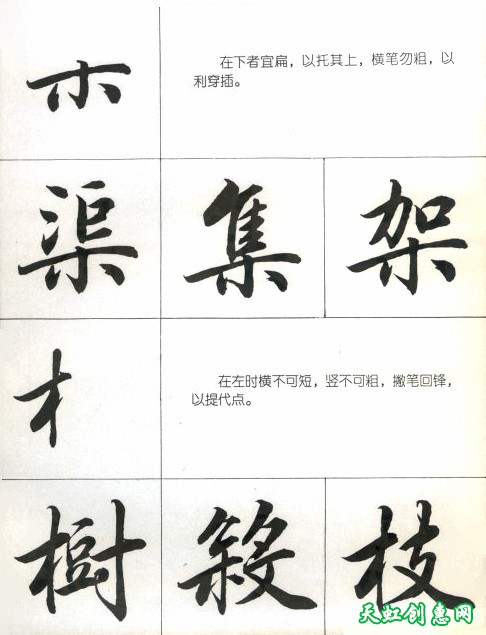 木
在下者宜扁，以托其上，横笔勿粗，以
利穿插。
渠 集 架
在左时横不可短，竖不可粗，撇笔回锋，
以提代点。
樹 枝
天虹创惠网